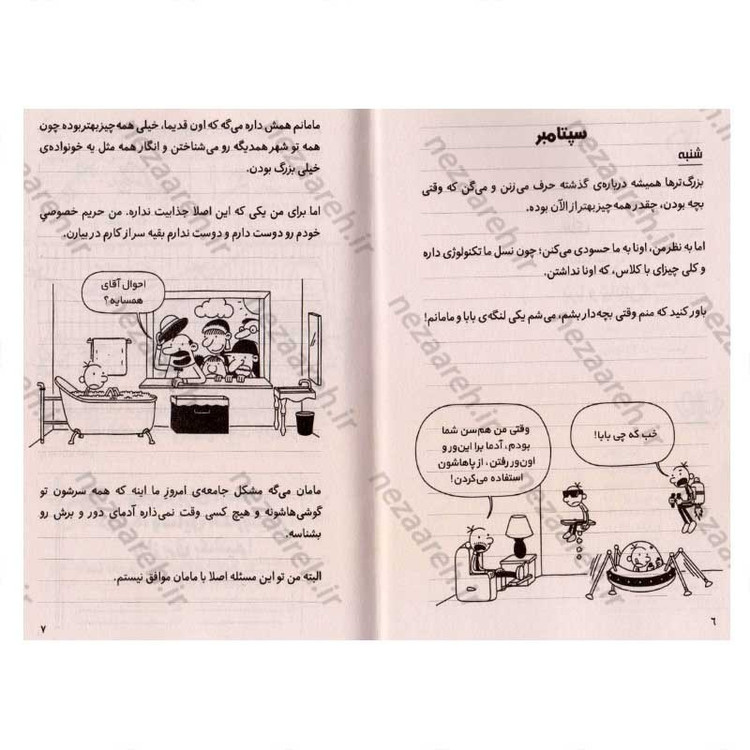 سپتامبر
شنبه
بزرگ‌ترها همیشه درباره‌ی گذشته حرف می‌زنن و می‌گن که وقتی
بچه بودن، چقدر همه چیز بهتر از الآن بوده.
اما به نظر من، اونا به ما حسودی می‌کنن؛ چون نسل ما تکنولوژی داره
و کلی چیزای با کلاس، که اونا نداشتن.
باور کنید که منم وقتی بچه‌دار بشم، می‌شم یکی لنگه‌ی بابا و مامانم!
خب که چی بابا!
وقتی من هم‌سن شما
بودم، آدما برا این‌ور و
اون‌ور رفتن، از پاهاشون
استفاده می‌کردن!
۶
مامانم همش داره می‌گه که اون قدیما، خیلی همه چیز بهتر بوده چون
همه تو شهر همدیگه رو می‌شناختن و انگار همه مثل یه خونواده‌ی
خیلی بزرگ بودن.
اما برای من یکی که این اصلا جذابیت نداره. من حریم خصوصیِ
خودم رو دوست دارم و دوست ندارم بقیه سر از کارم در بیارن.
احوال آقای
همسایه؟
مامان می‌گه مشکل جامعه‌ی امروزِ ما اینه که همه سرشون تو
گوشی‌هاشونه و هیچ کسی وقت نمی‌ذاره آدمای دور و برش رو
بشناسه.
البته من تو این مسئله اصلا با مامان موافق نیستم.
۷
nezaareh.ir